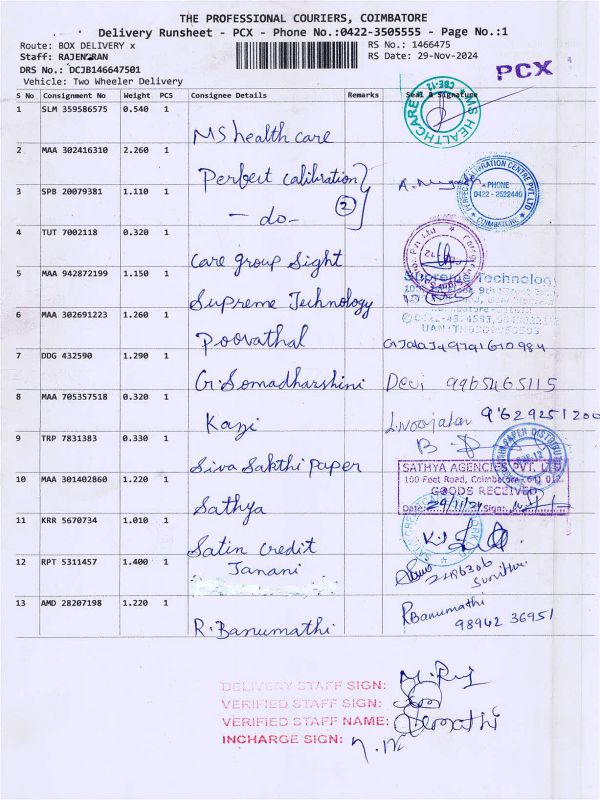 THE PROFESSIONAL COURIERS, COIMBATORE
Delivery Runsheet - PCX - Phone No.:0422-3505555 - Page No.:1
Route: BOX DELIVERY x
RS No.: 1466475
Staff: RAJENDRAN
RS Date: 29-Nov-2024
DRS No.: DCJB146647501
Vehicle: Two Wheeler Delivery
PCX
S No Consignment No Weight PCS Consignee Details Remarks Seal & Signature
1 SLM 359586575 0.540 1 MS health care
MS HEALTHCARE CBE-12
2 MAA 302416310 2.260 1 Perfect calibration
PHONE 0422 - 2522446 COIMBATORE
3 SPB 20079381 1.110 1 - do - 2
4 TUT 7002118 0.320 1 Care group Sight
5 MAA 942872199 1.150 1 Supreme Technology
Supreme Technology
6 MAA 302691223 1.260 1 Poovathal
9791610984
7 DDG 432590 1.290 1 G. Somadharshini Devi 9965465115
8 MAA 705357518 0.320 1 Kazi L. Noorjahan 9629251200
9 TRP 7831383 0.330 1 Siva Sakthi paper
10 MAA 301402860 1.220 1 Sathya
SATHYA AGENCIES PVT. LTD.
100 Feet Road, Coimbatore - 641 012.
GOODS RECEIVED
Date: 29/11/24 Sign:
11 KRR 5670734 1.010 1 Satin credit
12 RPT 5311457 1.400 1 Janani
13 AMD 28207198 1.220 1 R. Banumathi
R Banumathi
98942 36951
DELIVERY STAFF SIGN:
VERIFIED STAFF SIGN:
VERIFIED STAFF NAME:
INCHARGE SIGN: